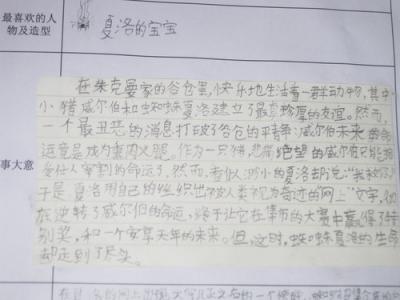 最喜欢的人
物及造型
夏洛的宝宝
在朱克曼家的谷仓里,快乐地生活着一群动物,其中
小猪威尔伯和蜘蛛夏洛建立了最真挚的友谊。然而,
一个最丑恶的消息打破了谷仓的平静:威尔伯未来的命
运竟是成为熏肉火腿。作为一只猪,悲痛绝望的威尔伯只能接
受任人宰割的命运了,然而,看似渺小的夏洛却说:"我救你。"于
于是夏洛用自己的丝织出了被人类视为奇迹的"网上"文字,彻
底逆转了威尔伯的命运,终于让它在集市的大赛中赢得了特
别奖,和一个安享天年的未来。但,这时,蜘蛛夏洛的生命
却走到了尽头。
事大意